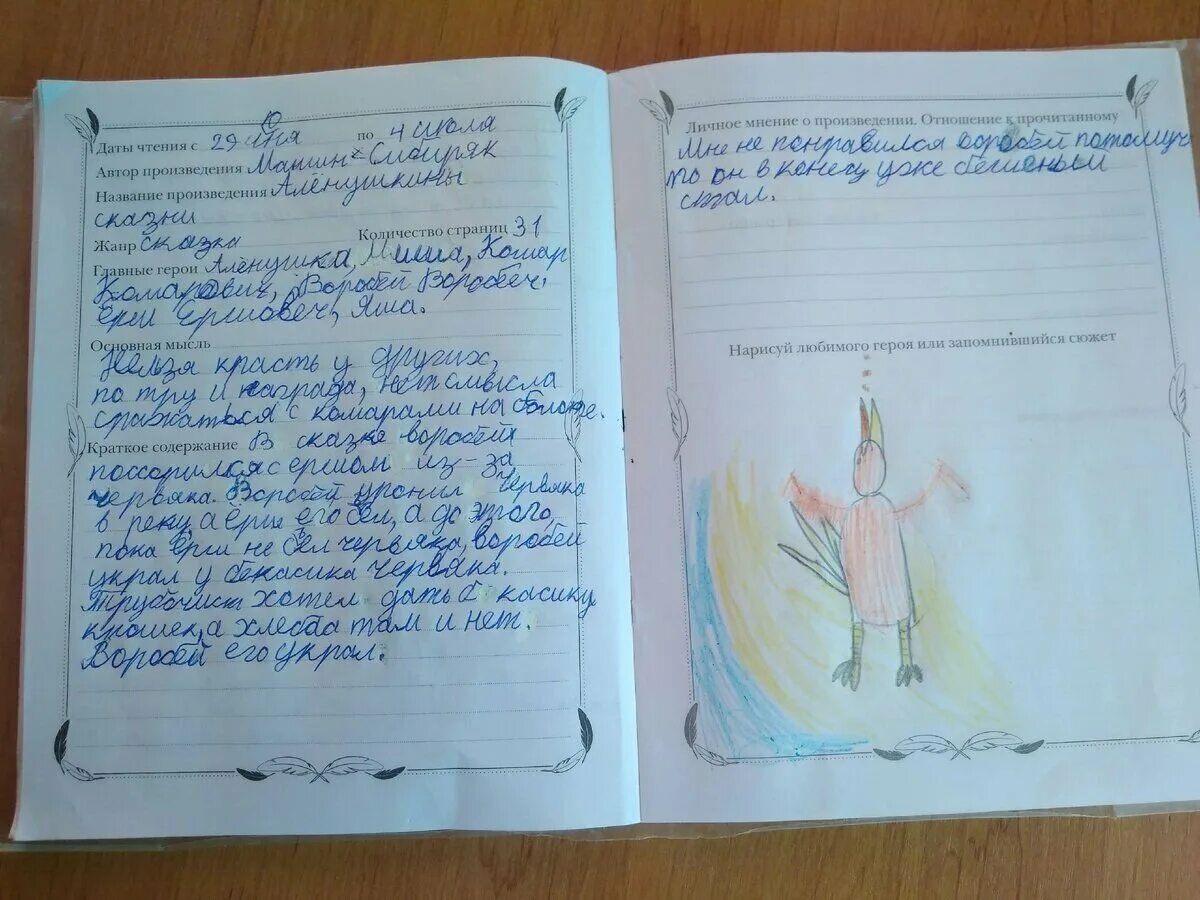 Даты чтения с 29 июня по 4 июля
Автор произведения Мамин-Сибиряк
Название произведения Алёнушкины
сказки
Жанр сказка Количество страниц 31
Главные герои Алёнушка, Миша, Комар
Комарович, Воробей Воробеч.
ёрш Ершовеч, Яша.
Основная мысль
Нельза красть у других,
по тру и награда, нет смысла
сражаться с комарами на болоте.
Краткое содержание В сказке воробей
поссорился с ершом из-за
червяка. Воробей уронил червяка
в реку, а ёрш его ъел, а до этого,
пока ёрш не ъел червяка, воробей
украл у бекасика червяка.
Трубочист хотел дать б касику
крошек, а хлеба там и нет.
Воробей его украл.
Личное мнение о произведении. Отношение к прочитанному
Мне не понравился воробей потомуч
то он в конец уже бешеный
стал.
Нарисуй любимого героя или запомнившийся сюжет